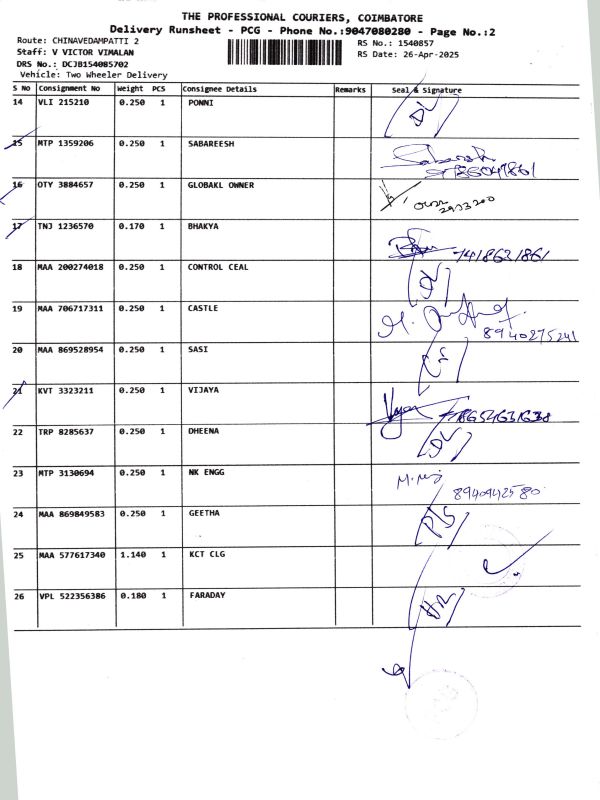 THE PROFESSIONAL COURIERS, COIMBATORE
Delivery Runsheet - PCG - Phone No.:9047080280 - Page No.:2
Route: CHINAVEDAMPATTI 2
RS No.: 1540857
Staff: V VICTOR VIMALAN
RS Date: 26-Apr-2025
DRS No.: DCJB154085702
Vehicle: Two Wheeler Delivery
S No Consignment No Weight PCS Consignee Details Remarks Seal & Signature
14 VLI 215210 0.250 1 PONNI DL
15 MTP 1359206 0.250 1 SABAREESH
16 OTY 3884657 0.250 1 GLOBAKL OWNER
17 TNJ 1236570 0.170 1 BHAKYA 7418621861
18 MAA 200274018 0.250 1 CONTROL CEAL DL
19 MAA 706717311 0.250 1 CASTLE 8940275241
20 MAA 869528954 0.250 1 SASI
21 KVT 3323211 0.250 1 VIJAYA
22 TRP 8285637 0.250 1 DHEENA DL
23 MTP 3130694 0.250 1 NK ENGG 8940942580
24 MAA 869849583 0.250 1 GEETHA
25 MAA 577617340 1.140 1 KCT CLG
26 VPL 522356386 0.180 1 FARADAY